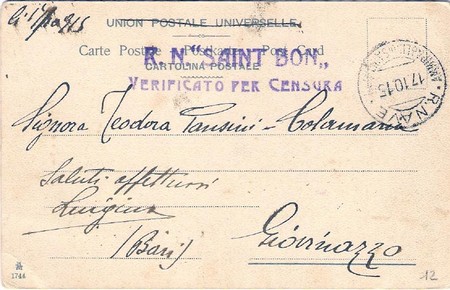 UNION POSTALE UNIVERSELLE
Carte Postale Postkarte Post Card
CARTOLINA POSTALE
R. N. "SAINT BON"
VERIFICATO PER CENSURA
R. NAVE
17.10.15
Signora Teodora Pansini-Colamaria
Saluti affettuosi
Luigino
(Bari)
Giovinazzo
1744
12